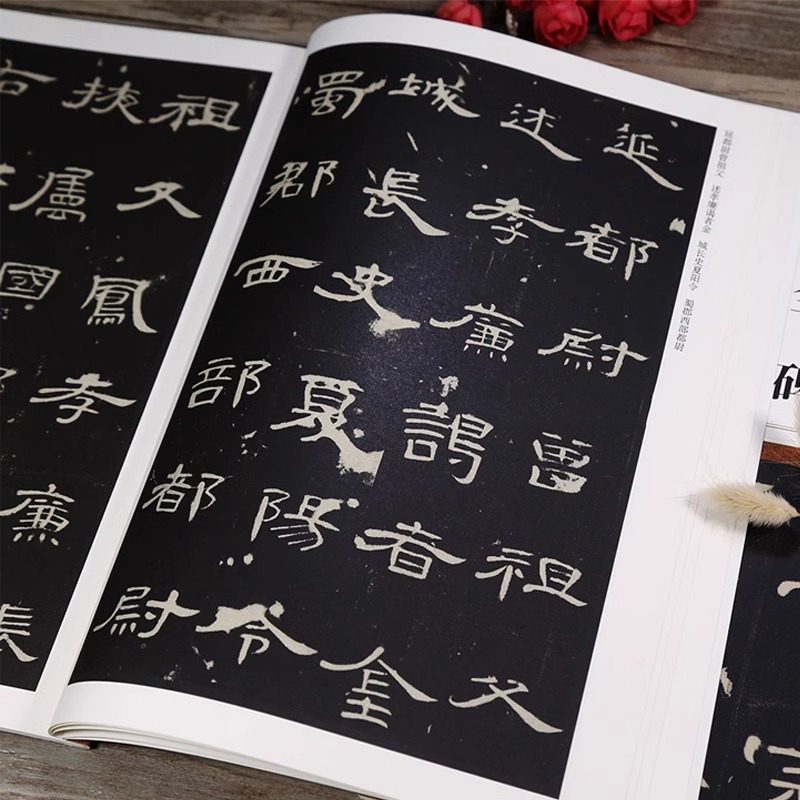 延都尉曾祖父
述孝廉謁者金
城長史夏陽令
蜀郡西部都尉
祖父鳳孝廉張
掖屬國
右
延都尉曾祖父　述孝廉谒者金　城长史夏阳令　蜀郡西部都尉
碑